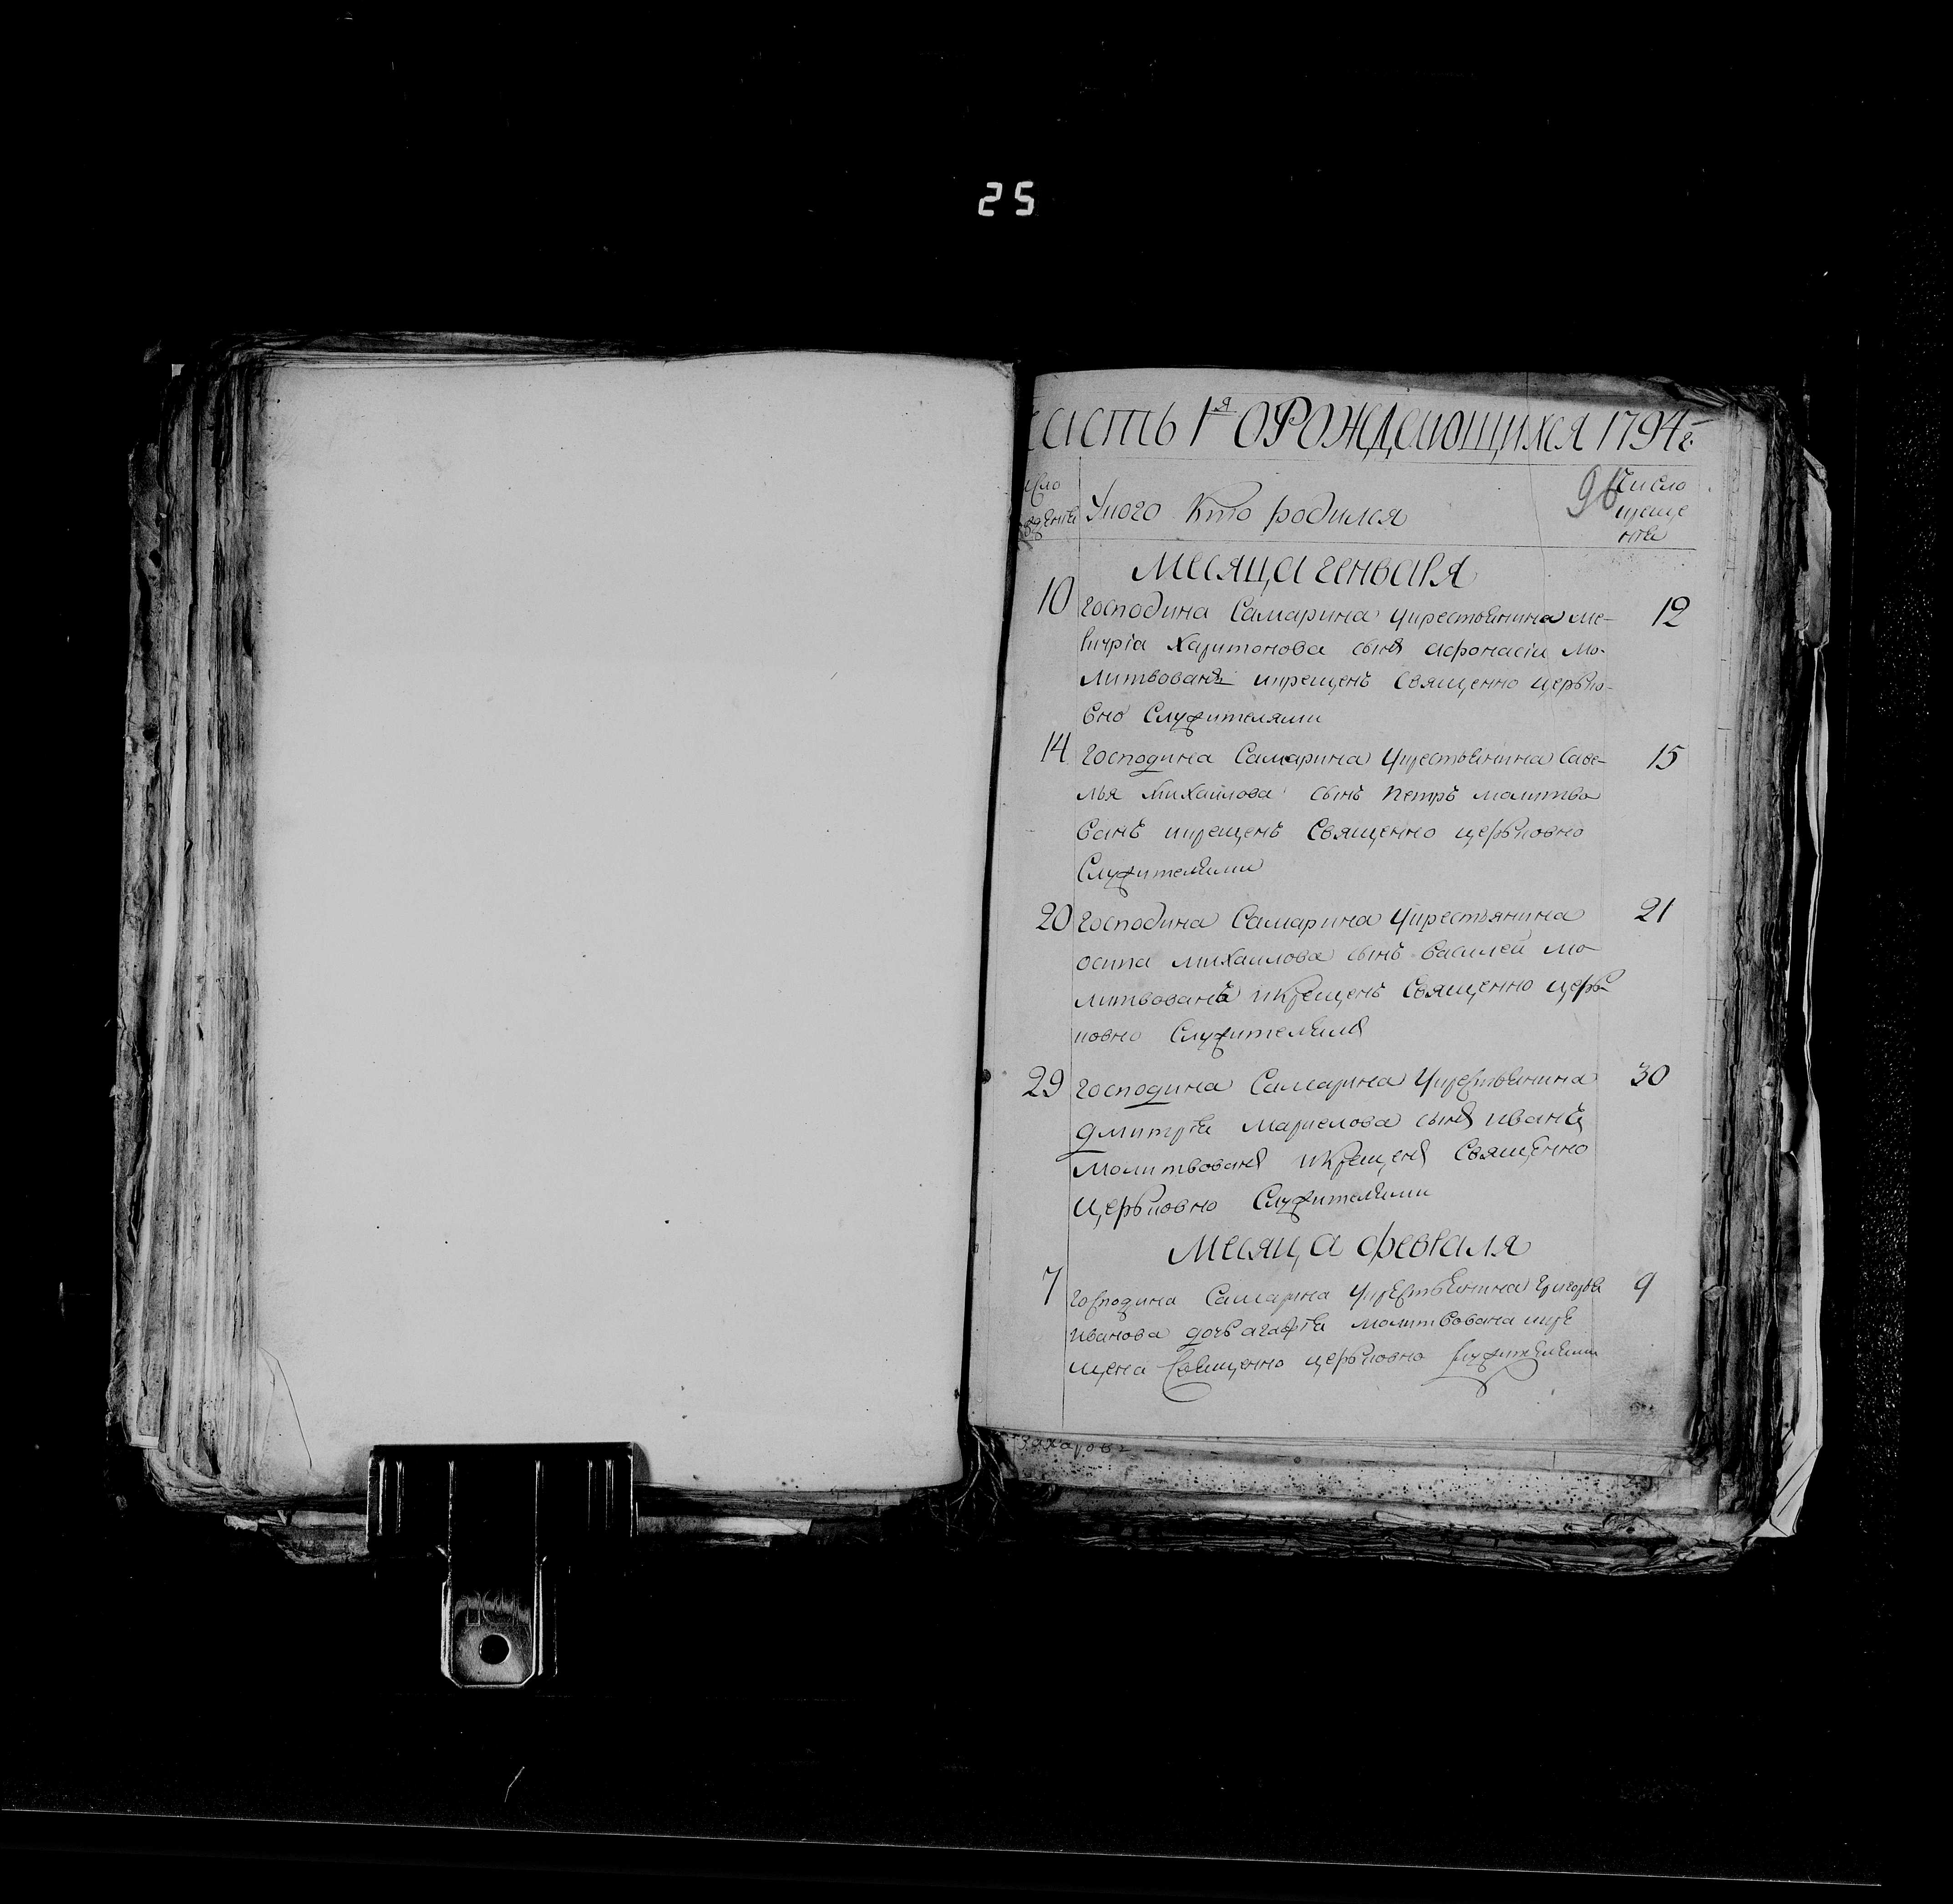 25
Часть 1я О РОЖДающихся 1794г:
96
число рожденiя
У кого Кто родился
Число креще нiя
Месяца генваря
10 господина Самарина У крестьянина Ме- 12
харитонова сынъ афонасiи мо-
литвованъ икрещенъ Священно церько-
вно Служителями
14 господина Самарина У крестьянина Саве- 15
лья михаилова сынъ петръ молитво
ванъ икрещенъ Священно церьковно
Служителями
20 господина Самарина У крестьянина 21
осипа михаилова сынъ василей мо
литвованъ икрещенъ Священно церь
ковно Служителями
29 господина Самарина У крестьянина 30
дмитрiя маркелова сынъ иванъ
молитвованъ икрещенъ Священно
церьковно Служителями
Месяца февраля
7 господина Самарина У крестьянина григорья 9
иванова дочь агафiя молитвована икре
щена Священно церьковно служителями
захаровъ